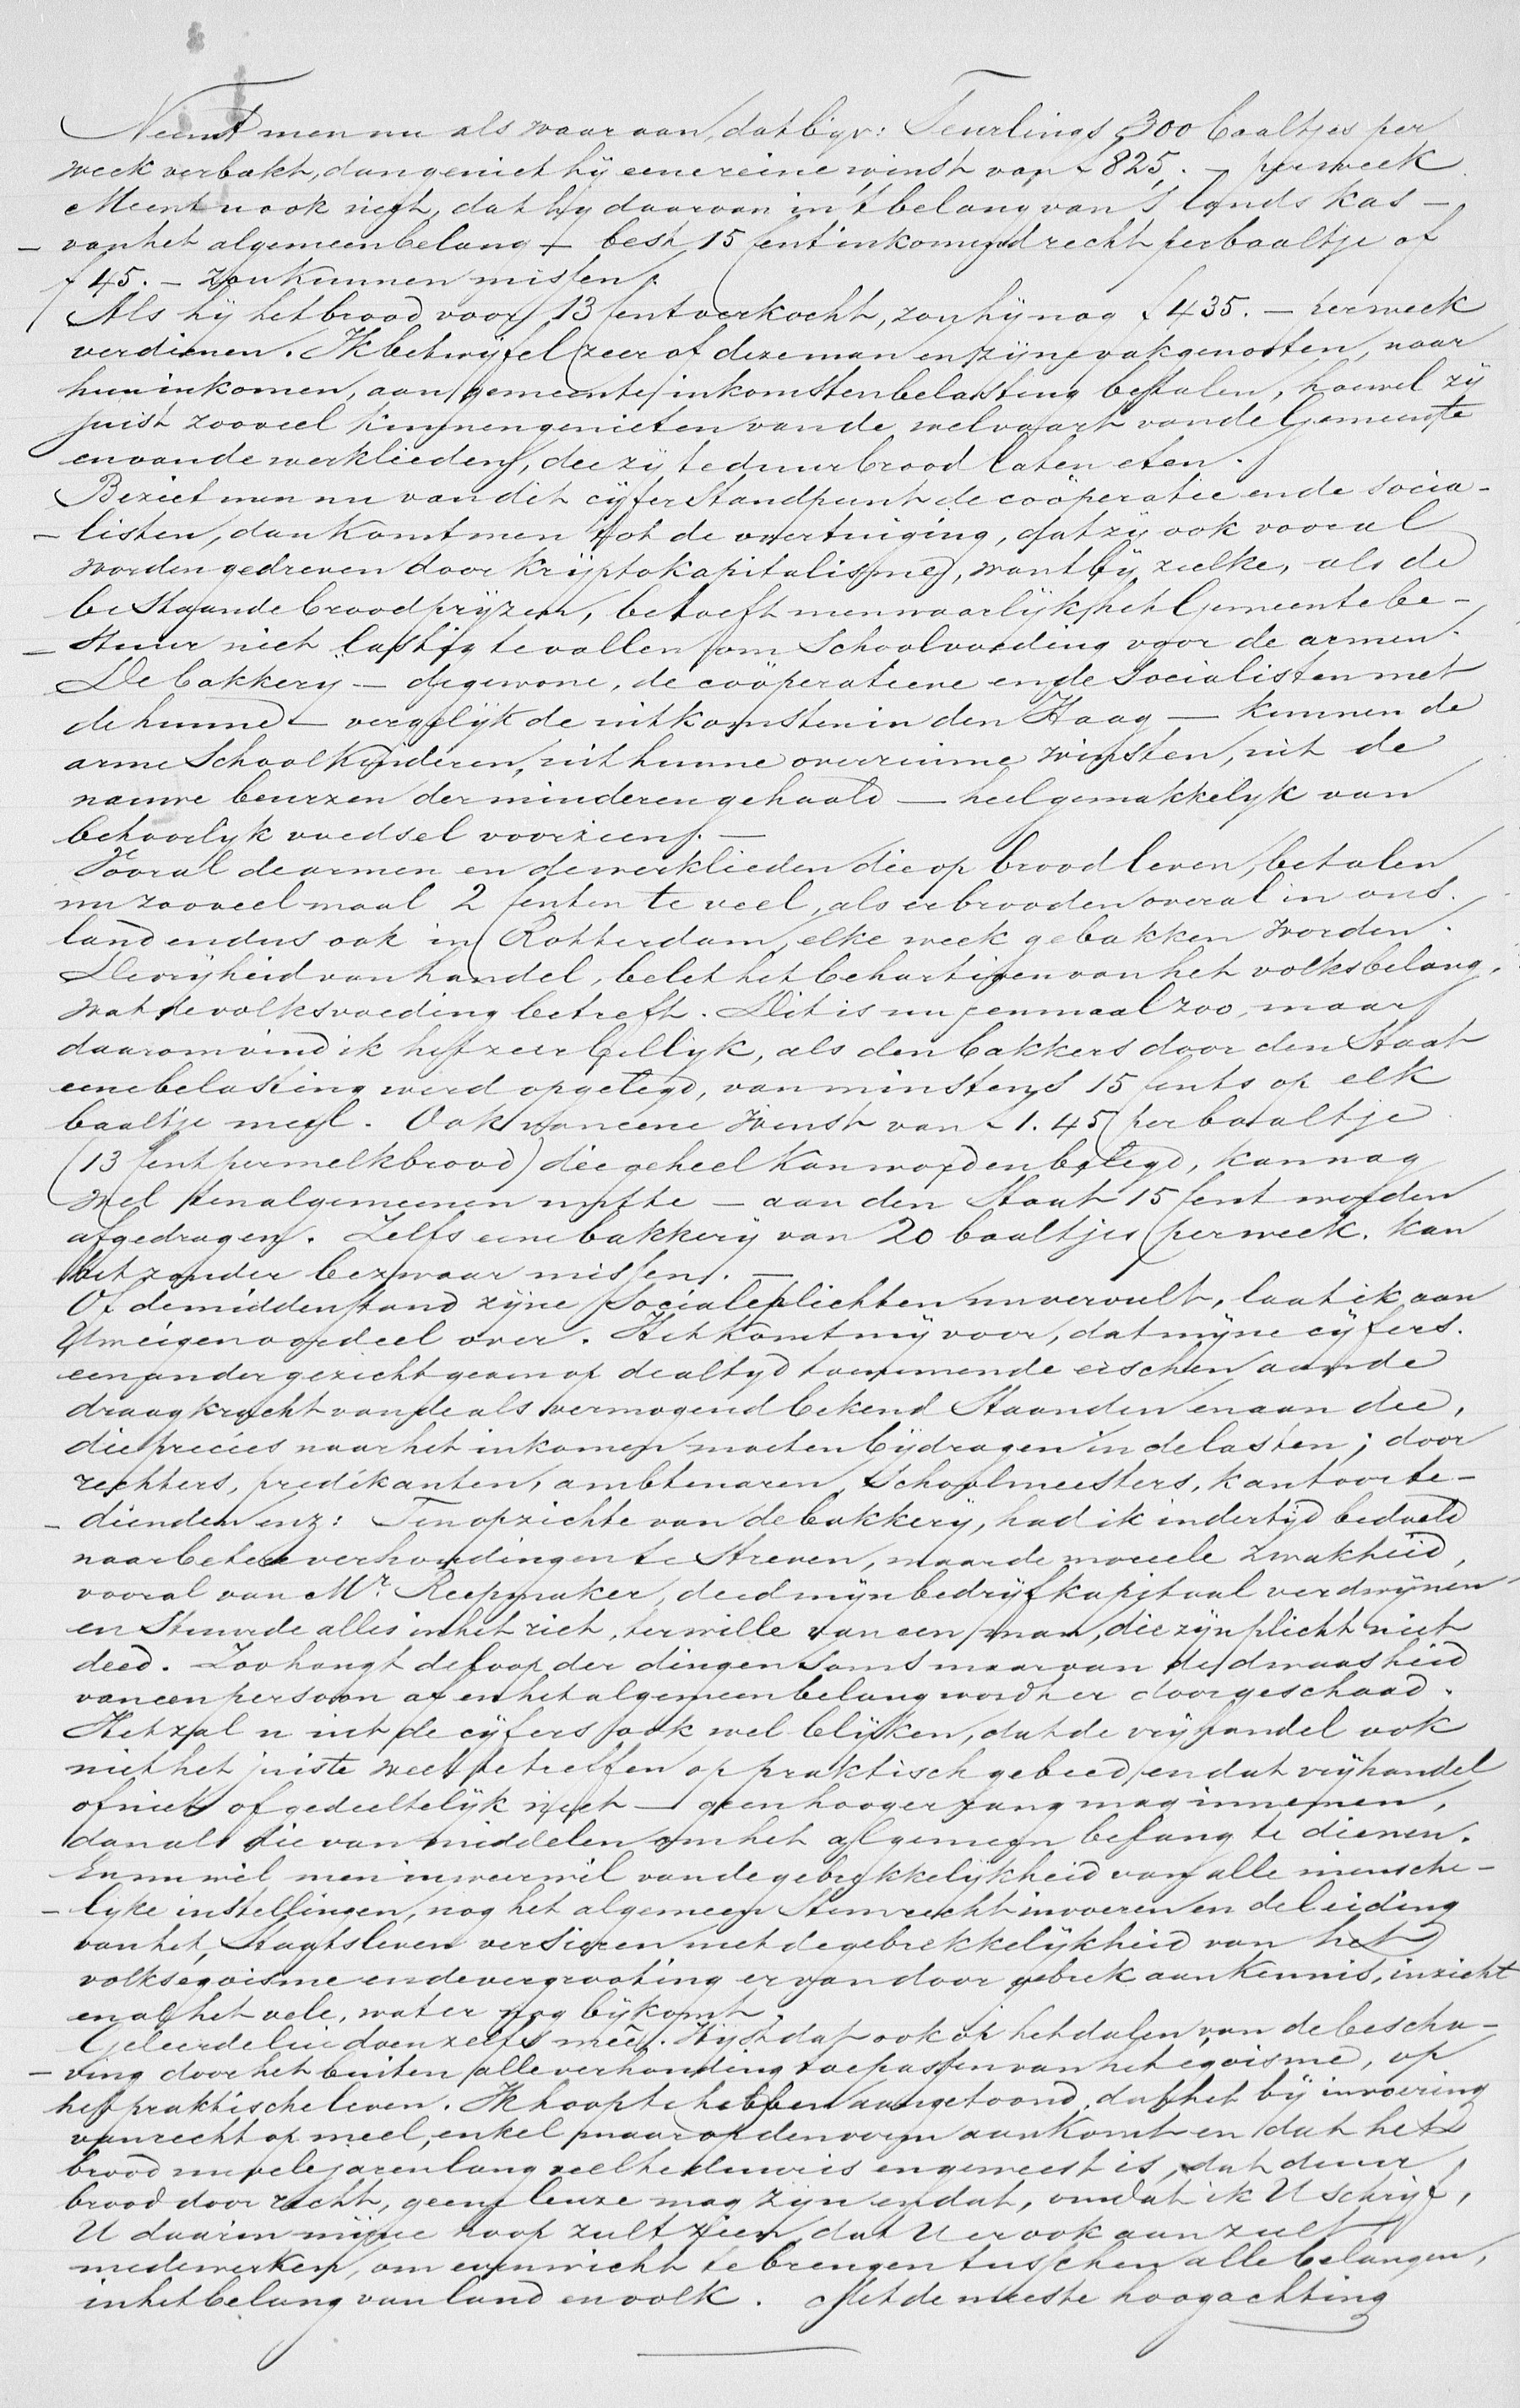 Neemt men nu als waar aan, dat bijv: Teurlings 300 baaltjes per
week verbakt, dan geniet hij eene reine winst van f 825. – per week
Meent u ook niet, dat hij daarvan in 't belang van 's lands kas –
– van het algemeen belang – best 15 Cent inkomend recht per baaltje of
f 45. – zou kunnen missen.
Als hij het brood voor 13 Cent verkocht, zou hij nog f 435. – per week
verdienen. Ik betwijfel zeer of deze man en zijne vakgenooten, naar
hun inkomen, aan gemeente inkomstenbelasting betalen, hoewel zij
juist zooveel kunnen genieten van de welvaart van de Gemeente
en van de werklieden, die zij te duur brood laten eten.
Beziet men nu van dit cijfer standpunt de coöperatie en de socia-
– listen, dan komt men tot de overtuiging, dat zij ook vooral
worden gedreven door kryptokapitalisme, want bij zulke, als de
bestaande broodprijzen, behoeft men waarlijk het Gemeentebe-
– stuur niet lastig te vallen om Schoolvoeding voor de armen.
De bakkery – de gewone, de coöperatieve en de Socialisten met
de hunne – vergelijk de uitkomsten in den Haag – kunnen de
arme Schoolkinderen, uit hunne overruime winsten, uit de
nauwe beurzen der minderen gehaald – heel gemakkelyk van
behoorlyk voedsel voorzien. –
Vooral de armen en de werklieden die op brood leven, betalen
nu zooveel maal 2 Centen te veel, als er brooden overal in ons
land en dus ook in Rotterdam, elke week gebakken worden.
De vrijheid van handel, belet het behartigen van het volksbelang,
wat de volksvoeding betreft. Dit is nu eenmaal zoo, maar
daarom vind ik het zeer billyk, als den bakkers door den Staat
eene belasting werd opgelegd, van minstens 15 Cents op elk
baaltje meel. Ook van eene winst van f 1.45 per baaltje
(13 Cent per melkbrood) die geheel kan worden belegd, kan nog
wel ten algemeenen nutte – aan den Staat 15 Cent worden
afgedragen. Zelfs eene bakkery van 20 baaltjes per week. kan
het zonder bezwaar missen. –
Of de middenstand zijne Sociale plichten nu vervult, laat ik aan
Uw eigen oordeel over. Het komt mij voor, dat mijne cijfers
een ander gezicht geven op de altyd toenemende eischen aan de
draagkracht van de als vermogend bekend Staanden en aan die,
die precies naar het inkomen moeten bijdragen in de lasten; door
rechters, predikanten, ambtenaren, Schoolmeesters, kantoorbe-
– dienden enz: Ten opzichte van de bakkerij, had ik indertijd bedoeld
naar betere verhoudingen te streven, maar de moreele zwakheid,
vooral van Mr Reepmaker, deed mijn bedrijfkapitaal verdwijnen
en Stuurde alles in het riet, ter wille van een man, die zijn plicht niet
deed. Zoo hangt de loop der dingen Soms maar van de dwaasheid
van een persoon af en het algemeen belang wordt er door geschaad.
Het zal u uit de cijfers ook wel blijken, dat de vrijhandel ook
niet het juiste weet te treffen op praktisch gebied en dat vrijhandel
of niet of gedeeltelijk niet – geen hooger rang mag innemen,
dan als die van middelen om het algemeen belang te dienen.
En nu wil men in weerwil van de gebrekkelijkheid van alle mensche-
– lyke instellingen, nog het algemeen Stemrecht invoeren en de leiding
van het Staatsleven versieren met de gebrekkelijkheid van het
volksegoisme en de vergrooting ervan door gebrek aan kennis, inzicht
en al het vele, wat er nog bijkomt.
Geleerde lui doen zelfs mee. Wijst dat ook op het dalen van de bescha-
– ving door het buiten alle verhouding toepassen van het egoisme, op
het praktische leven. Ik hoop te hebben aangetoond, dat het bij invoering
van recht op meel, enkel maar op den vorm aankomt en dat het
brood nu vele jaren lang veel te duur is en geweest is, dat duur
brood door recht, geene leuze mag zijn en dat, omdat ik U schrijf,
U daarin mijne hoop zult zien, dat U er ook aan zult
medewerken, om evenwicht te brengen tusschen alle belangen,
in het belang van land en volk. Met de meeste hoogachting